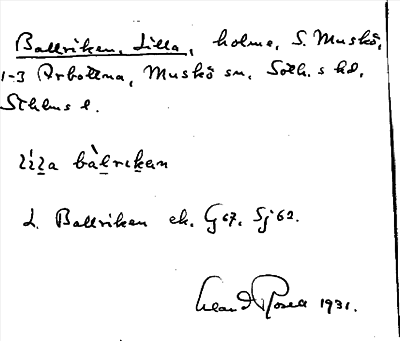 Ballriken, Lilla, holme, S. Muskö,
1-3 Arbottna, Muskö sn, Soth. s hd,
Sthlms l.
lilla bàlrikan
L. Ballriken ek. G 67, Sj 62.
1931.